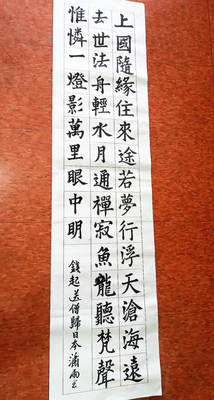 上國隨緣住來途若夢行浮天滄海遠
去世法舟輕水月通禪寂魚龍聽梵聲
惟憐一燈影萬里眼中明
錢起送僧歸日本瀟雨